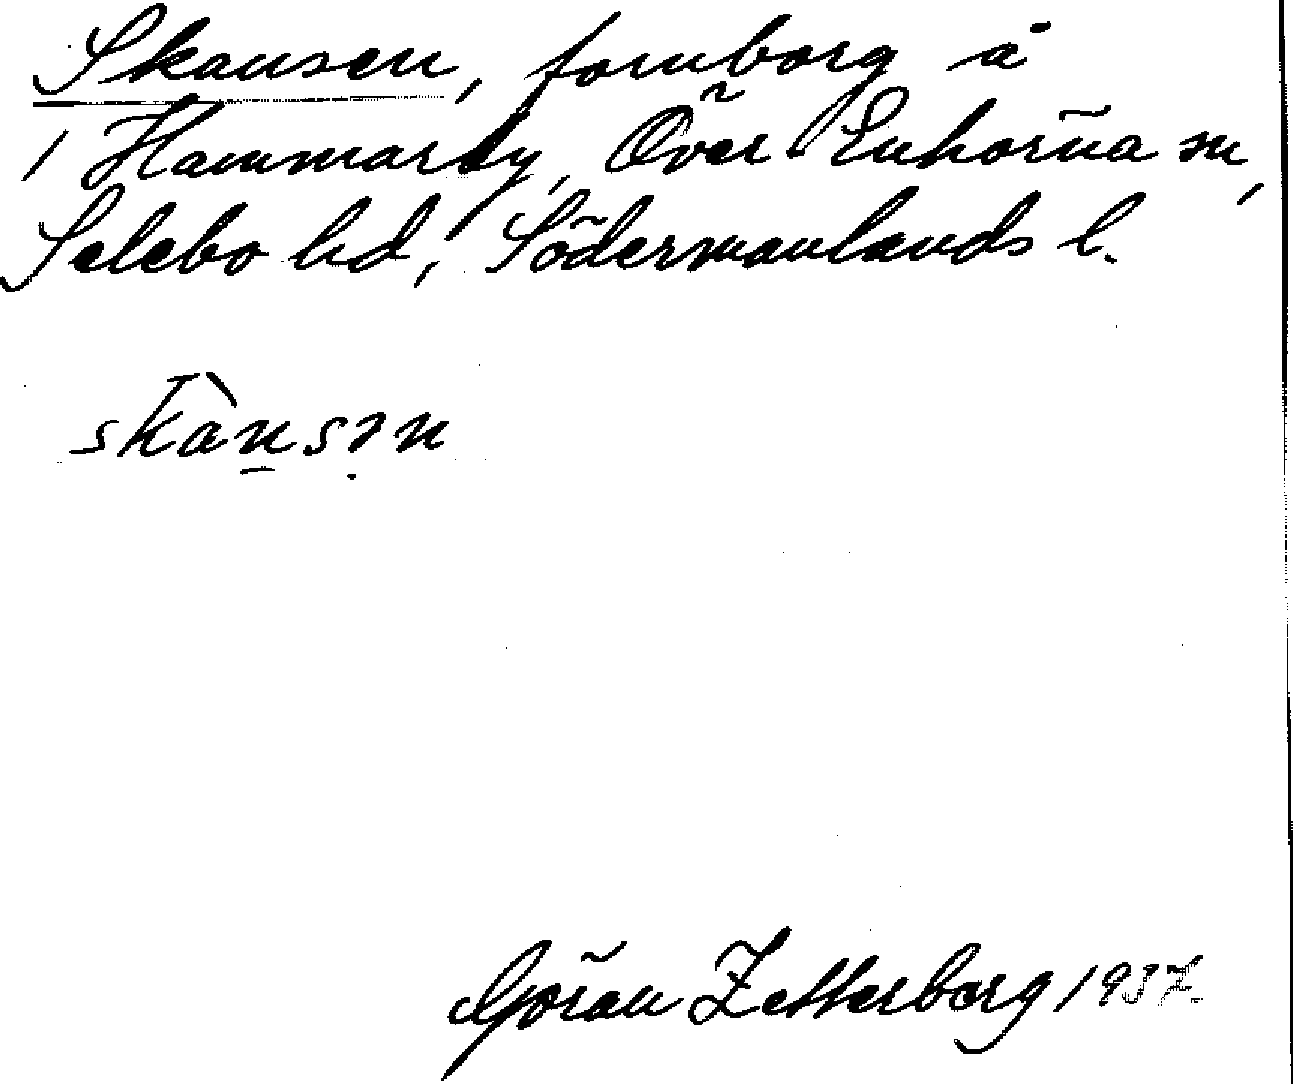 Skansen, fornborg å
/ Hammarby, Över Enhörna sn,
Selebo hd, Södermanlands l.
skànsən
Göran Zetterberg 1937.